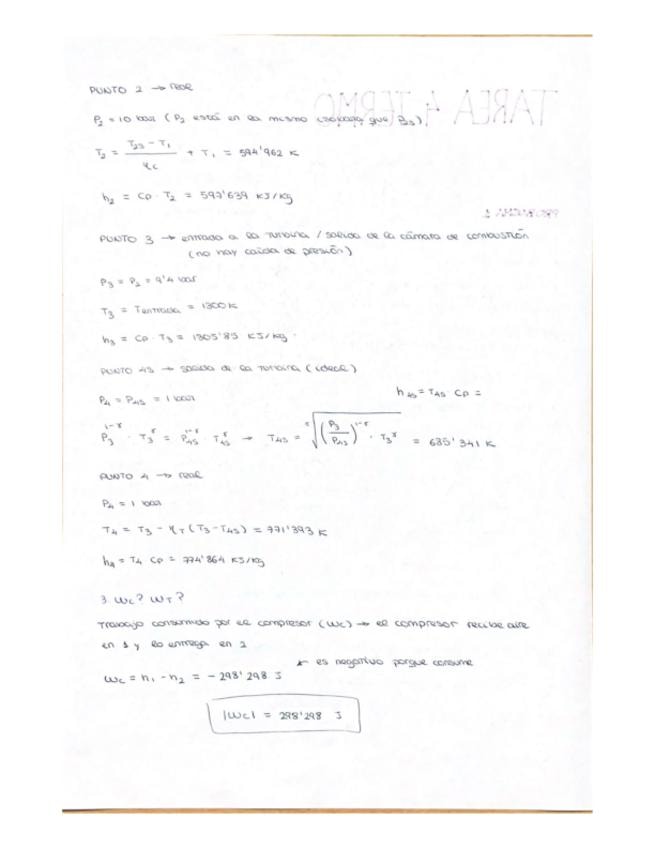 PUNTO 2 → real
P₂ = 10 bar (P₂ está en la misma isobara que P₂s)
TAREA 4 TERMO
T₂ = (T₂s - T₁)/ηc + T₁ = 594'962 K
h₂ = Cp · T₂ = 597'639 KJ/Kg
PROBLEMA 1
PUNTO 3 → entrada a la turbina / salida de la cámara de combustión
(no hay caída de presión)
P₃ = P₂ = 9'4 bar
T₃ = Tentrada = 1300 K
h₃ = Cp · T₃ = 1305'85 KJ/Kg
PUNTO 4s → salida de la turbina (ideal)
h₄s = T₄s · Cp =
P₄ = P₄s = 1 bar
P₃^(1-γ) · T₃^γ = P₄s^(1-γ) · T₄s^γ → T₄s = ᵞ√((P₃/P₄s)^(1-γ) · T₃^γ) = 685'341 K
PUNTO 4 → real
P₄ = 1 bar
T₄ = T₃ - ηT (T₃ - T₄s) = 771'393 K
h₄ = T₄ Cp = 774'864 KJ/Kg
3. Wc? WT?
Trabajo consumido por el compresor (Wc) → el compresor recibe aire
en 1 y lo entrega en 2
← es negativo porque consume
Wc = h₁ - h₂ = - 298'298 J
|Wc| = 298'298 J